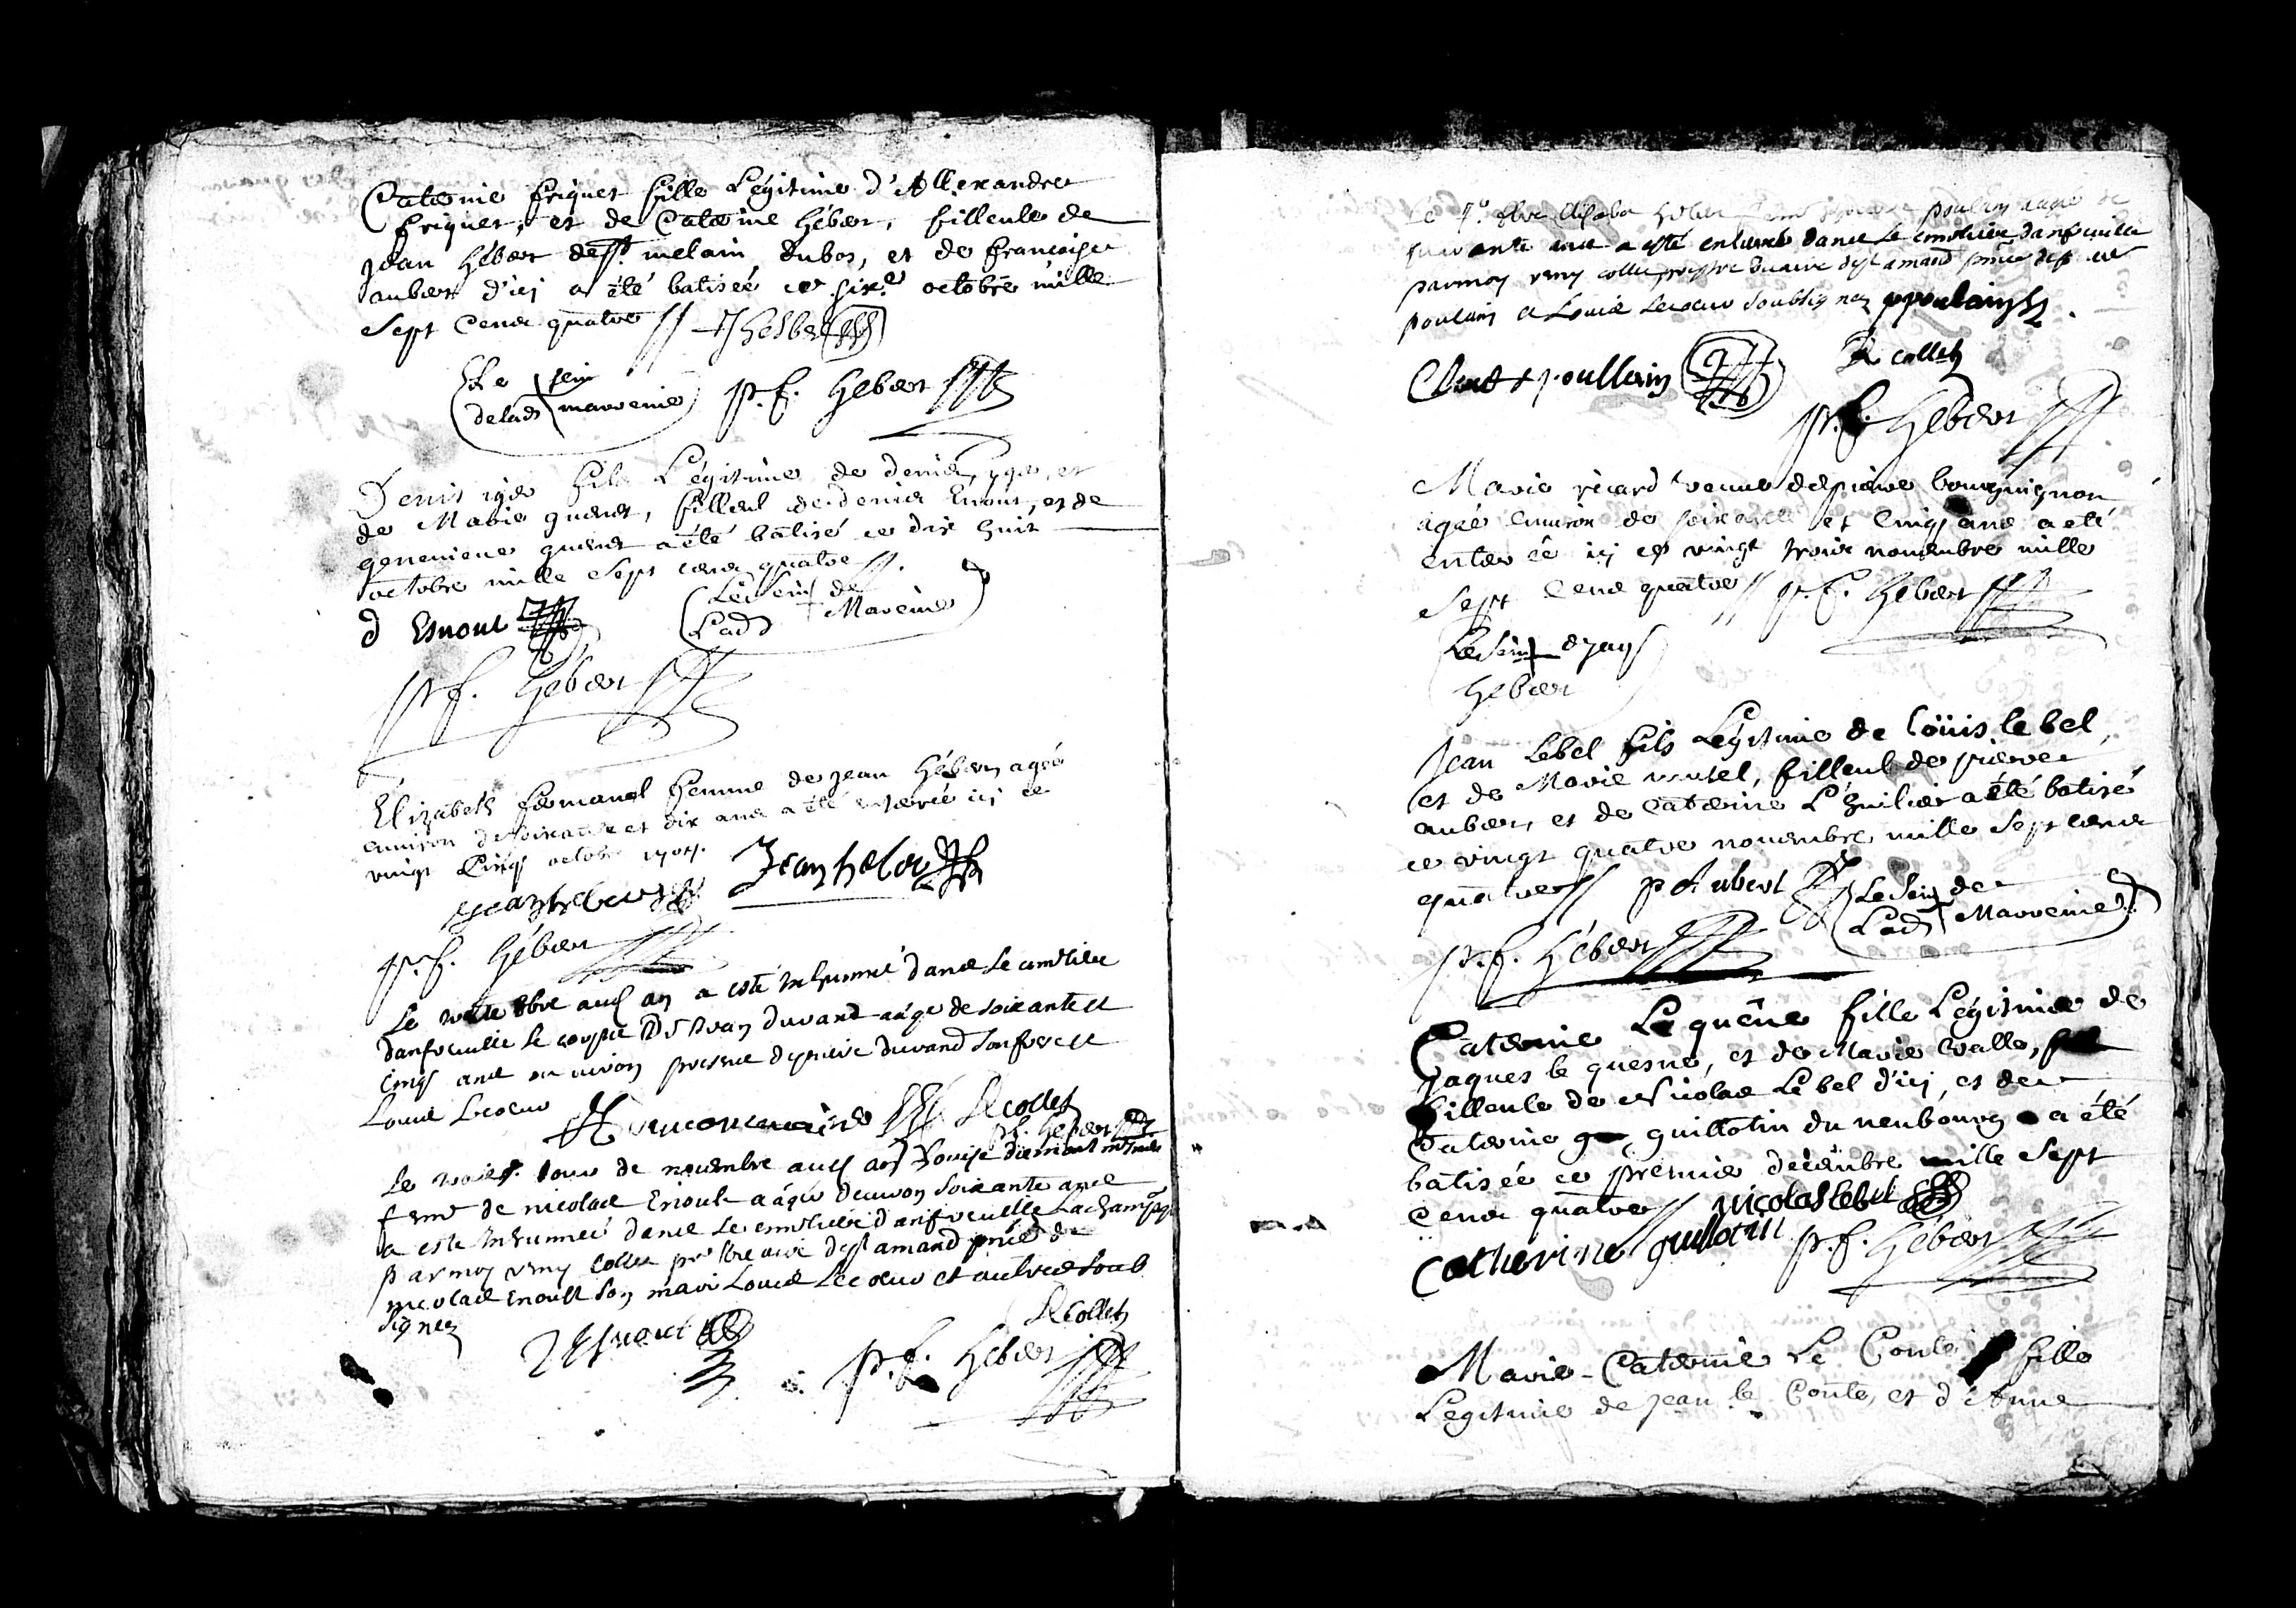 Caterine friquet fille Légitime d'Allexandre
friquet, et de Caterine Hébert, filleule de
Jean Hébert de st melain dubos, et de francoise
aubert d'ici a été batisée ce six.e octobre mille
Sept Cens quatre
p.f. Hébert
Denis fils Légitime de Denis et
de Marie filleul de denis Enout, et de
genevieve a été batisé ce dix huit
octobre mille Sept cens quatre
Le Sein de
Lad Mareine
d Esnout
p.f. Hébert
Elizabeth femme de Jean Hébert agée
environ de soixante et dix ans a été enterée ici ce
vingt Cinq octobre 1704.
Jean hebert
p.f. Hébert
Le 8bre aud an a esté Inhumé dans Le cimetiere
danfreuille le corps de durand aagé de soixante et
Cinq ans ou environ presence de pierre durand Son frere et
Louis Lecoeur
R collet
p.f. Hebert
Le jour de novembre aud an Louise
femme de nicolas Enoult aagée denviron Soixante ans
a esté Inhumée dans Le cimetiere danfreuille La Champagne
par moy remy collet prestre vicaire de st amand
nicolas Enoult Son mari Louis Lecoeur et autres Soub
Signez
R Collet
p.f. Hébert
Le 9bre
ans a esté enterré dans Le cimetiere danfreuille
par moy remy collet prestre vicaire de st amand
poulain et Louis Lecoeur Soubsignez p poulain
poullain
R collet
p.f. Hébert
Marie ricard veuve de pierre bourguignon
agée environ de soixante et Cinq ans a été
enterée ici ce vingt trois novembre mille
Sept Cens quatre p.f. Hébert
Le Sein de Jean
Hébert
Jean Lebel fils Légitime de Loüis le bel
et de Marie filleul de pierre
aubert, et de Caterine L'huilier a été batisé
ce vingt quatre novembre mille Sept cens
quatre p Aubert
Le Sein de
Lad Marreine
p.f. Hébert
Caterine Le quêne fille Légitime de
Jaques le quesne, et de Marie valle,
filleule de Nicolas Lebel d'ici, et de
Caterine guillotin du neubourg a été
batisée ce premier décembre mille Sept
Cens quatre nicolas lebel
Catherine guillotin p.f. Hébert
Marie-Caterine Le Conte fille
Légitime de Jean le Conte, et d'Anne